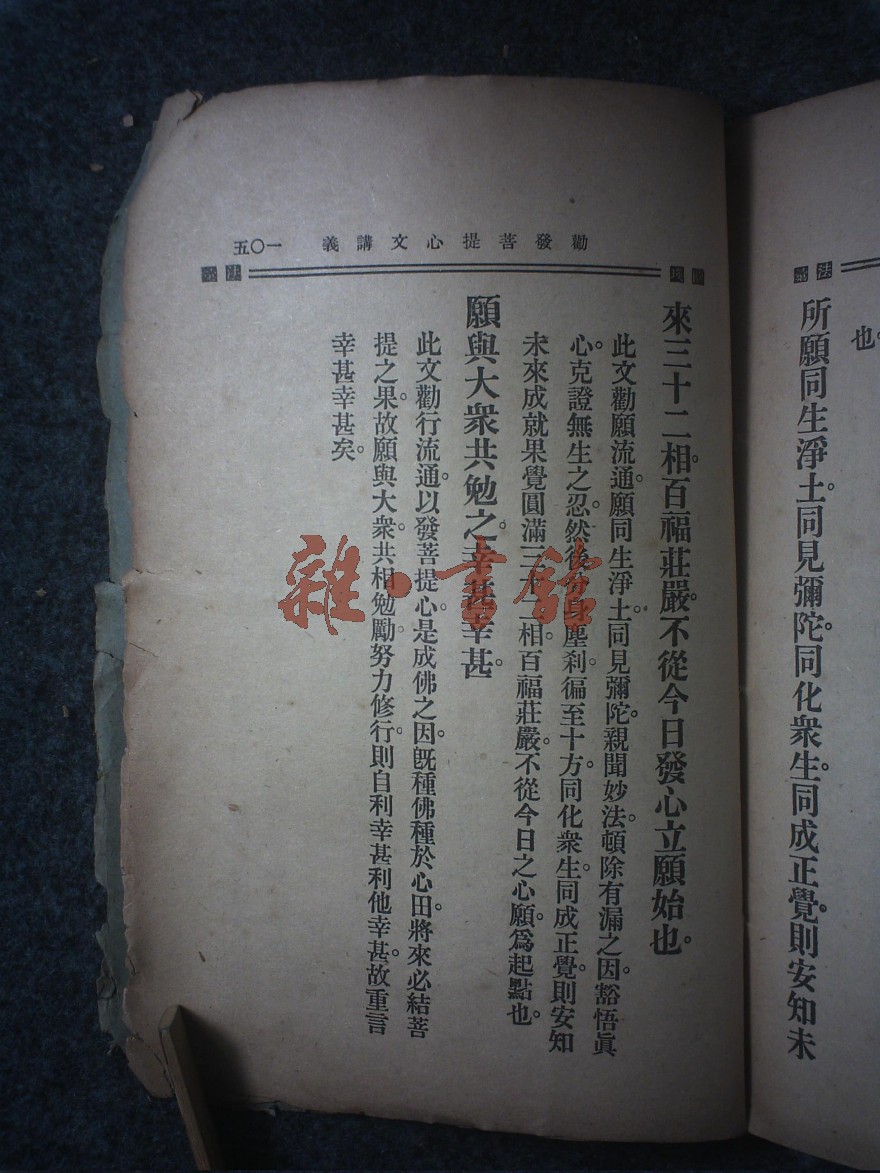 也。
所願同生淨土。同見彌陀。同化衆生。同成正覺。則安知未
勸發菩提心文講義 一〇五
來三十二相。百福莊嚴。不從今日發心立願始也。
此文勸願流通。願同生淨土。同見彌陀。親聞妙法。頓除有漏之因。豁悟眞
心。克證無生之忍。然後分身塵刹。徧至十方。同化衆生。同成正覺。則安知
未來成就果覺圓滿三十二相。百福莊嚴。不從今日之心願。爲起點也。
願與大衆共勉之。幸甚幸甚。
此文勸行流通。以發菩提心。是成佛之因。旣種佛種於心田。將來必結菩
提之果。故願與大衆。共相勉勵。努力修行。則自利幸甚。利他幸甚。故重言
幸甚幸甚矣。
雜·書館